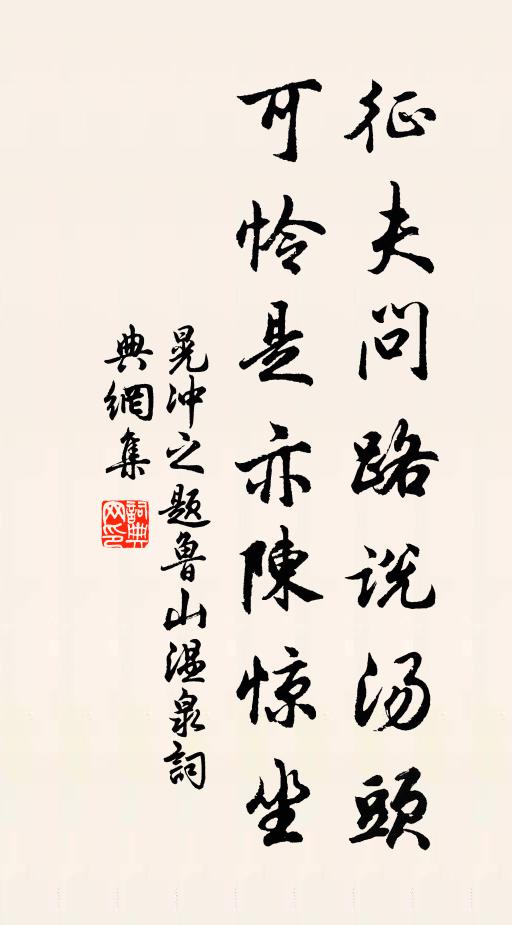 征夫问路说汤頭
可怜是亦陳惊坐
晁冲之题魯山温泉詞
典網集
詞典网印